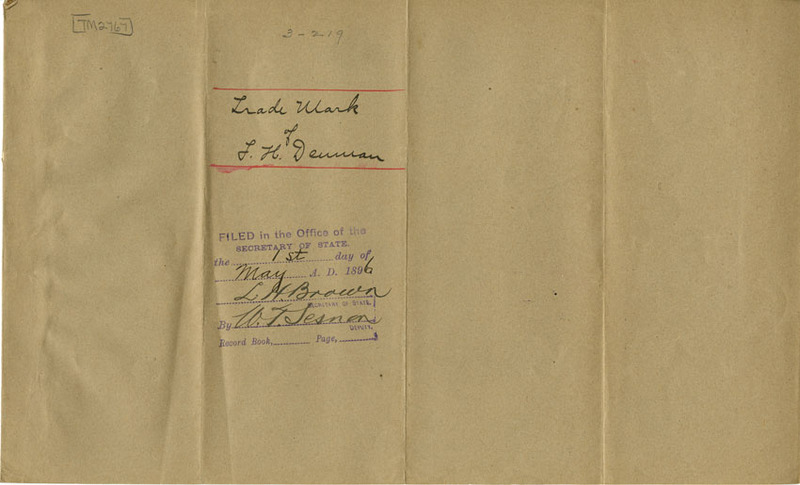 TM2767
3-2-19
Trade Mark
of
F. H. Denman
FILED in the Office of the
SECRETARY OF STATE.
the 1st day of
May A. D. 1896
L H Brown
SECRETARY OF STATE.
By W. T. Sesnon
DEPUTY.
Record Book, Page,